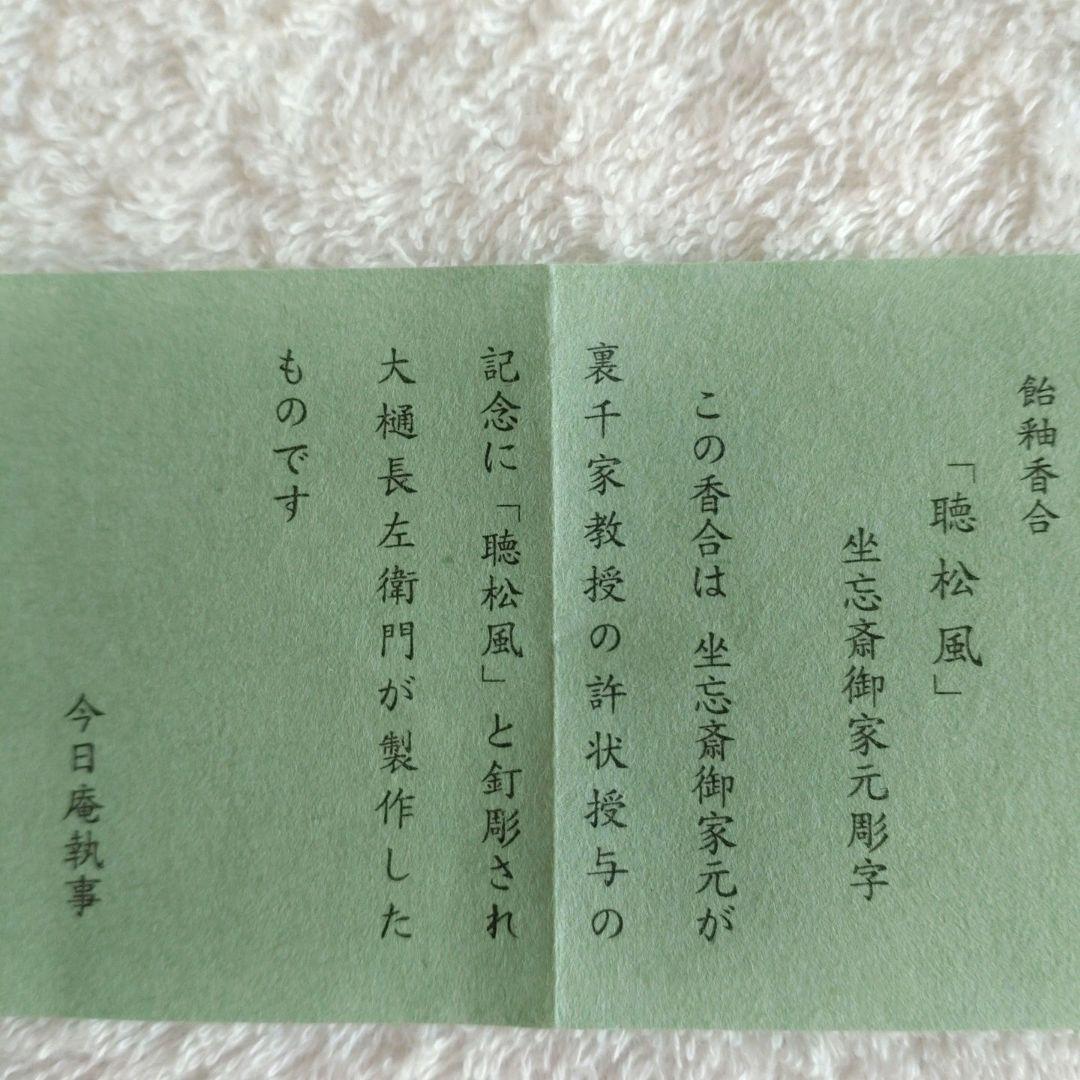 飴釉香合
「聴松風」
坐忘斎御家元彫字
この香合は 坐忘斎御家元が
裏千家教授の許状授与の
記念に「聴松風」と釘彫され
大樋長左衛門が製作した
ものです
今日庵執事